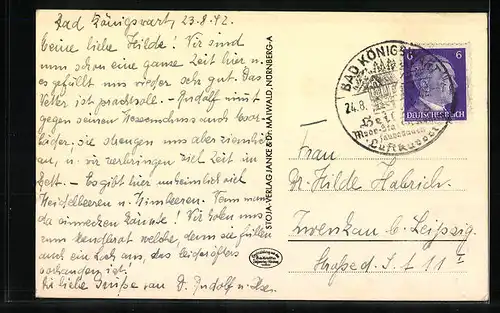 Bad Königswart, 23.8.42.
Meine liebe Hilde! Wir sind
nun schon eine ganze Zeit hier u.
es gefällt uns wieder sehr gut. Das
Wetter ist prachtvoll. – Rudolf nimmt
gegen seinen auch Moor-
bäder, sie strengen uns aber ziemlich
an, u. wir verbringen viel Zeit im
Bett. – Es gibt hier unheimlich viel
Heidelbeeren u. Himbeeren. Wenn man
da einwecken könnte! Wir holen uns
zum Abendbrot welche, denn sie füllen
auch ein Loch aus, das leider öfters
vorhanden ist.
liebe Grüße von D. Rudolf u.
STOJA-VERLAG JANKE & Dr. MAIWALD, NÜRNBERG-A
BAD KÖNIGSWART
24.8.
Luftkurort
6 6
DEUTSCHES REICH
Frau
Hilde
Zwenkau b. Leipzig.
Straße d. S.A 11 I